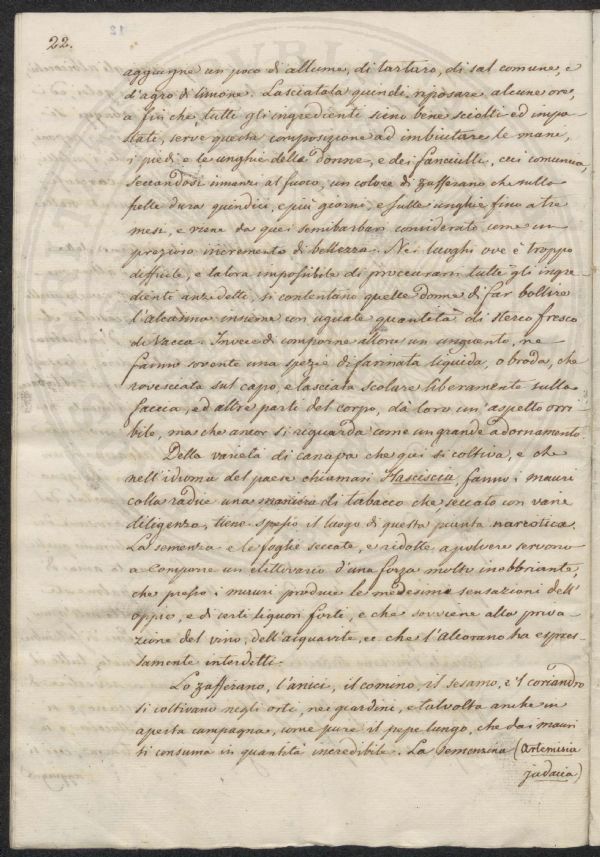 22.
aggiugne un poco di allume, di tartaro, di sal comune, e
d'agro di limone. Lasciatala quindi riposare alcune ore,
a fin che tutti gli ingredienti sieno bene sciolti ed impa-
stati, serve questa composizione ad imbiutare le mani,
i piedi e le unghie delle donne, e dei fanciulli, cui comunica,
seccandosi innanzi al fuoco, un colore di zafferano che sulla
pelle dura quindici, e più giorni, e sulle unghie fino a tre
mesi, e viene da quei semibarbari considerato come un
prezioso incremento di bellezza. Nei luoghi ove è troppo
difficile, e talora impossibile di proccurarsi tutti gli ingre-
dienti anzidetti, si contentano quelle donne di far bollire
l'alcanna insieme con uguale quantità di sterco fresco
di Vacca. Invece di comporne allora un unguento, ne
fanno sovente una spezie di farinata liquida, o broda, che
rovesciata sul capo, e lasciata scolare liberamente sulla
faccia, ed altre parti del corpo, dà loro un aspetto orri-
bile, ma che ancor si risguarda come un grande adornamento.
Della varietà di canapa che qui si coltiva, e che
nell'idioma del paese chiamasi Hasciscia, fanno i mauri
colla radice una maniera di tabacco che seccato con varie
diligenze, tiene spesso il luogo di questa pianta narcotica.
La semenza e le foglie seccate, e ridotte a polvere servono
a comporre un elettovario d'una forza molto inebbriante,
che presso i mauri produce le medesime sensazioni dell'
oppio, e di certi liquori forti, e che sovviene alla priva-
zione del vino, dell'acquavite, ec che l'Alcorano ha espres-
samente interdetti.
Lo zafferano, l'anici, il comino, il sesamo, e 'l coriandro
si coltivano negli orti, nei giardini, e talvolta anche in
aperta campagna, come pure il pepe lungo, che dai mauri
si consuma in quantità incredibile. La Semenzina (Artemisia
judaica)